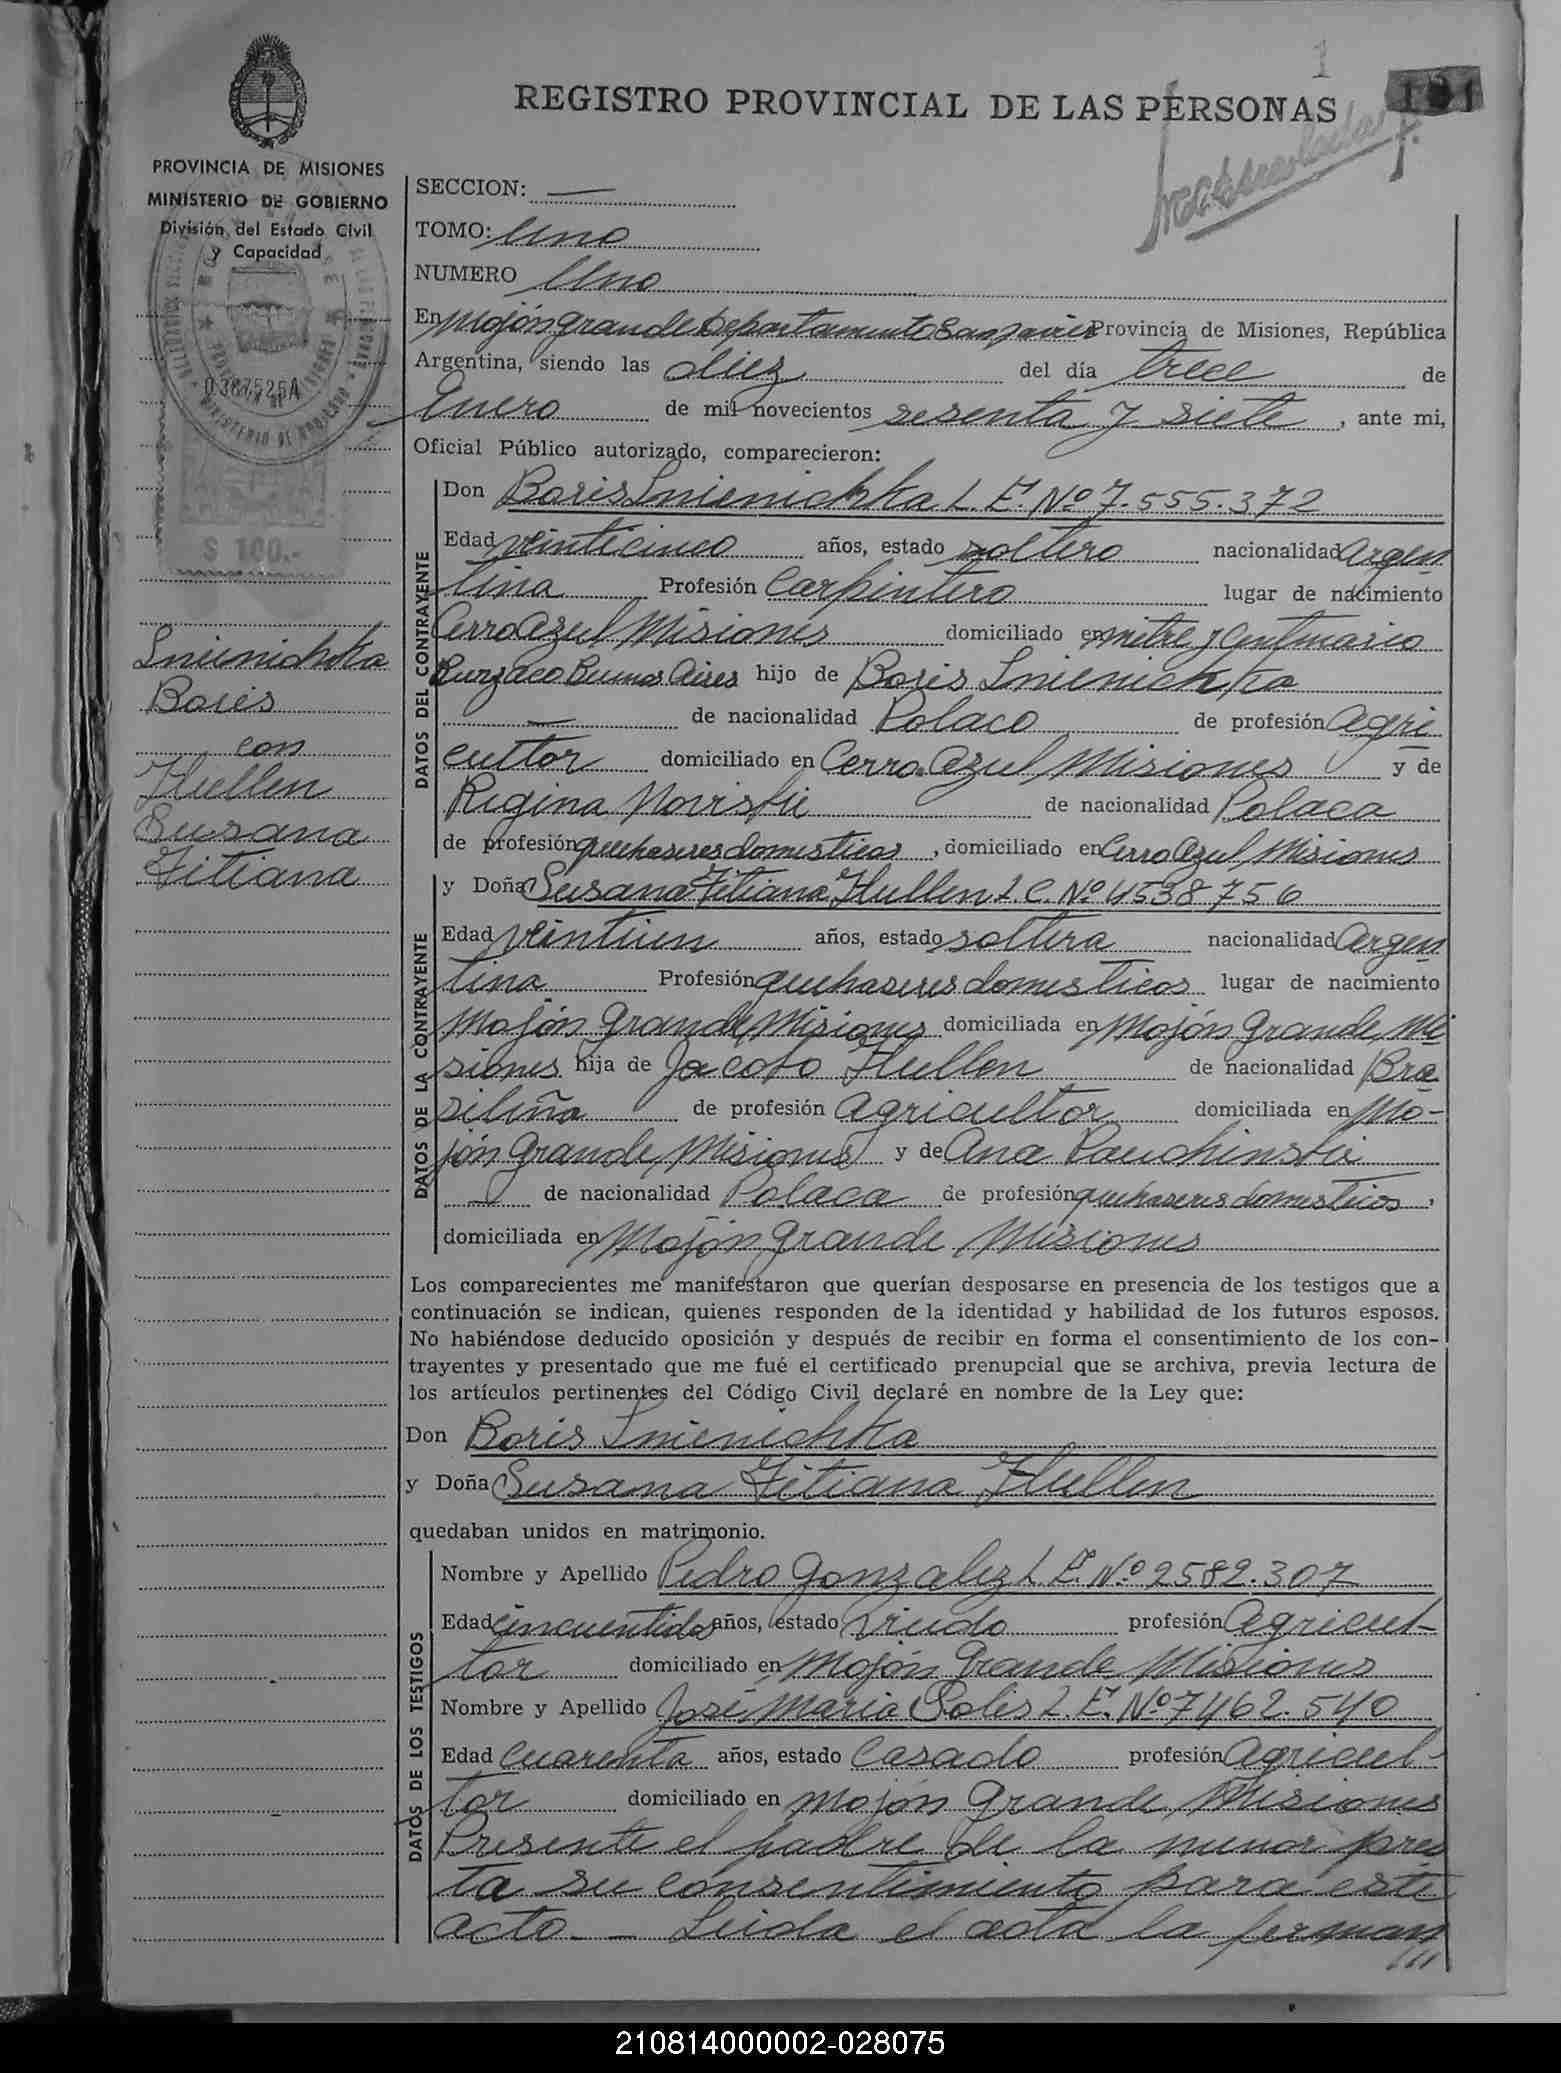 1
REGISTRO PROVINCIAL DE LAS PERSONAS
PROVINCIA DE MISIONES
MINISTERIO DE GOBIERNO
División del Estado Civil
y Capacidad
0387525A
$ 100.-
Snienichka
Boris
con
Hullen
Susana
Titiana
SECCION: —
TOMO: Uno
NUMERO Uno
En Mojón Grande Departamento San Javier Provincia de Misiones, República
Argentina, siendo las diez del día trece de
Enero de mil novecientos sesenta y siete, ante mi,
Oficial Público autorizado, comparecieron:
DATOS DEL CONTRAYENTE
Don Boris Snienichka L. E. Nº 7.555.372
Edad veinticinco años, estado soltero nacionalidad Argen
tina Profesión Carpintero lugar de nacimiento
Cerro Azul Misiones domiciliado en mitre y Centenario
Burzaco Buenos Aires hijo de Boris Snienichka
— de nacionalidad Polaco de profesión Agri
cultor domiciliado en Cerro Azul Misiones y de
Regina de nacionalidad Polaca
de profesión quehaseres domesticos, domiciliado en Cerro Azul, Misiones
DATOS DE LA CONTRAYENTE
y Doña Susana Titiana Hullen L. C. Nº 4538756
Edad veintiun años, estado soltera nacionalidad Argen
tina Profesión quehaseres domesticos lugar de nacimiento
Mojón Grande, Misiones domiciliada en Mojón Grande, Mi
siones hija de Jacobo Hullen de nacionalidad Bra
sileña de profesión Agricultor domiciliada en Mo-
jón Grande, Misiones y de Ana
— de nacionalidad Polaca de profesión quehaseres domesticos,
domiciliada en Mojón Grande, Misiones
Los comparecientes me manifestaron que querían desposarse en presencia de los testigos que a
continuación se indican, quienes responden de la identidad y habilidad de los futuros esposos.
No habiéndose deducido oposición y después de recibir en forma el consentimiento de los con-
trayentes y presentado que me fué el certificado prenupcial que se archiva, previa lectura de
los artículos pertinentes del Código Civil declaré en nombre de la Ley que:
Don Boris Snienichka
y Doña Susana Titiana Hullen
quedaban unidos en matrimonio.
DATOS DE LOS TESTIGOS
Nombre y Apellido Pedro Gonzalez L. E. Nº 2582.307
Edad cincuentidos años, estado Viudo profesión Agricul-
tor domiciliado en Mojón Grande Misiones
Nombre y Apellido José Maria Solis L. E. Nº 7462.540
Edad cuarenta años, estado Casado profesión Agricul-
tor domiciliado en Mojón Grande Misiones
Presente el padre de la menor pres
ta su consentimiento para este
acto. — Leida el acta la firman
///
210814000002-028075